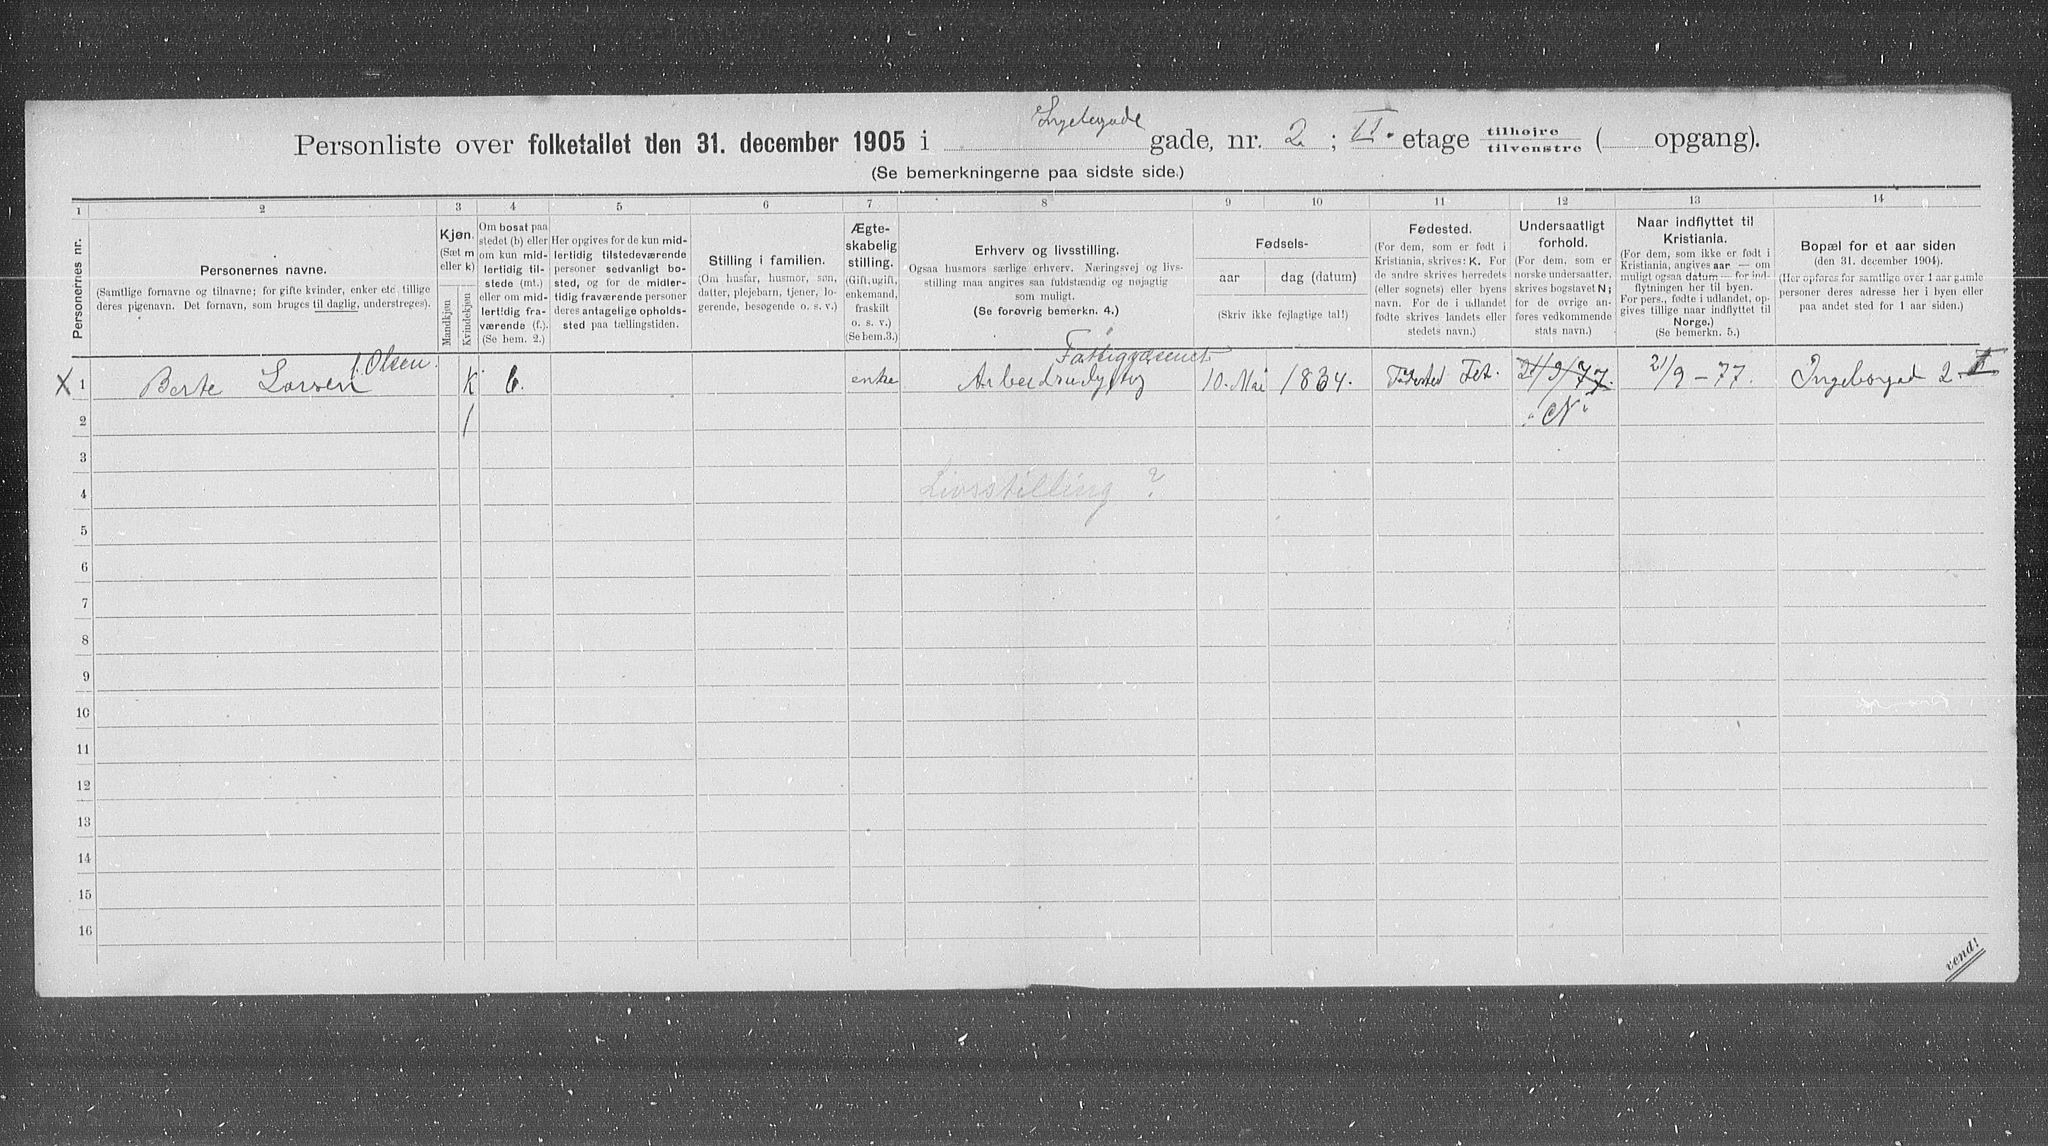 Personliste over folketallet den 31. december 1905 i Ingebgade gade, nr. 2 ; II. etage tilhøjre tilvenstre ( opgang).
(Se bemerkningerne paa sidste side.)
1 2 3 4 5 6 7 8 9 10 11 12 13 14
Personernes nr.
Personernes navne.
(Samtlige fornavne og tilnavne; for gifte kvinder, enker etc. tillige
deres pigenavn. Det fornavn, som bruges til daglig, understreges).
Kjøn.
(Sæt m
eller k)
Mandkjøn
Kvindekjøn
Om bosat paa
stedet (b) eller
om kun mid-
lertidig til-
stede (mt.)
eller om mid-
lertidig fra-
værende (f.).
(Se bem. 2.)
Her opgives for de kun mid-
lertidig tilstedeværende
personer sedvanligt bo-
sted, og for de midler-
tidig fraværende personer
deres antagelige opholds-
sted paa tællingstiden.
Stilling i familien.
(Om husfar, husmor, søn,
datter, plejebarn, tjener, lo-
gerende, besøgende o. s. v.)
Ægte-
skabelig
stilling.
(Gift, ugift,
enkemand,
fraskilt
o. s. v.)
(Se bem.3.)
Erhverv og livsstilling.
Ogsaa husmors særlige erhverv. Næringsvej og livs-
stilling maa angives saa fuldstændig og nøjagtig
som muligt.
(Se forøvrig bemerkn. 4.)
Fødsels-
aar dag (datum)
(Skriv ikke fejlagtige tal!)
Fødested.
(For dem, som er født i
Kristiania, skrives: K. For
de andre skrives herredets
(eller sognets) eller byens
navn. For de i udlandet
fødte skrives landets eller
stedets navn.)
Undersaatligt
forhold.
(For dem, som er
norske undersaatter,
skrives bogstavet N;
for de øvrige an-
føres vedkommende
stats navn.)
Naar indflyttet til
Kristiania.
(For dem, som ikke er født i
Kristiania, angives aar — om
muligt ogsaa datum — for ind-
flytningen her til byen.
For pers., fødte i udlandet, op-
gives tillige naar indflyttet til
Norge.)
(Se bemerkn. 5.)
Bopæl for et aar siden
(den 31. december 1904).
(Her opføres for samtlige over 1 aar gamle
personer deres adresse her i byen eller
paa andet sted for 1 aar siden.)
f. Olsen. Fattigvæsenet
X 1 Berte Larsen K b. enke Arbeidsudygtig 10. Mai 1834. Fødested Fet. 21/9/77. 21/9-77. Ingeborgad 2. II
2 / "N"
3
4 Livsstilling ?
5
6
7
8
9
10
11
12
13
14
15
16
vend!